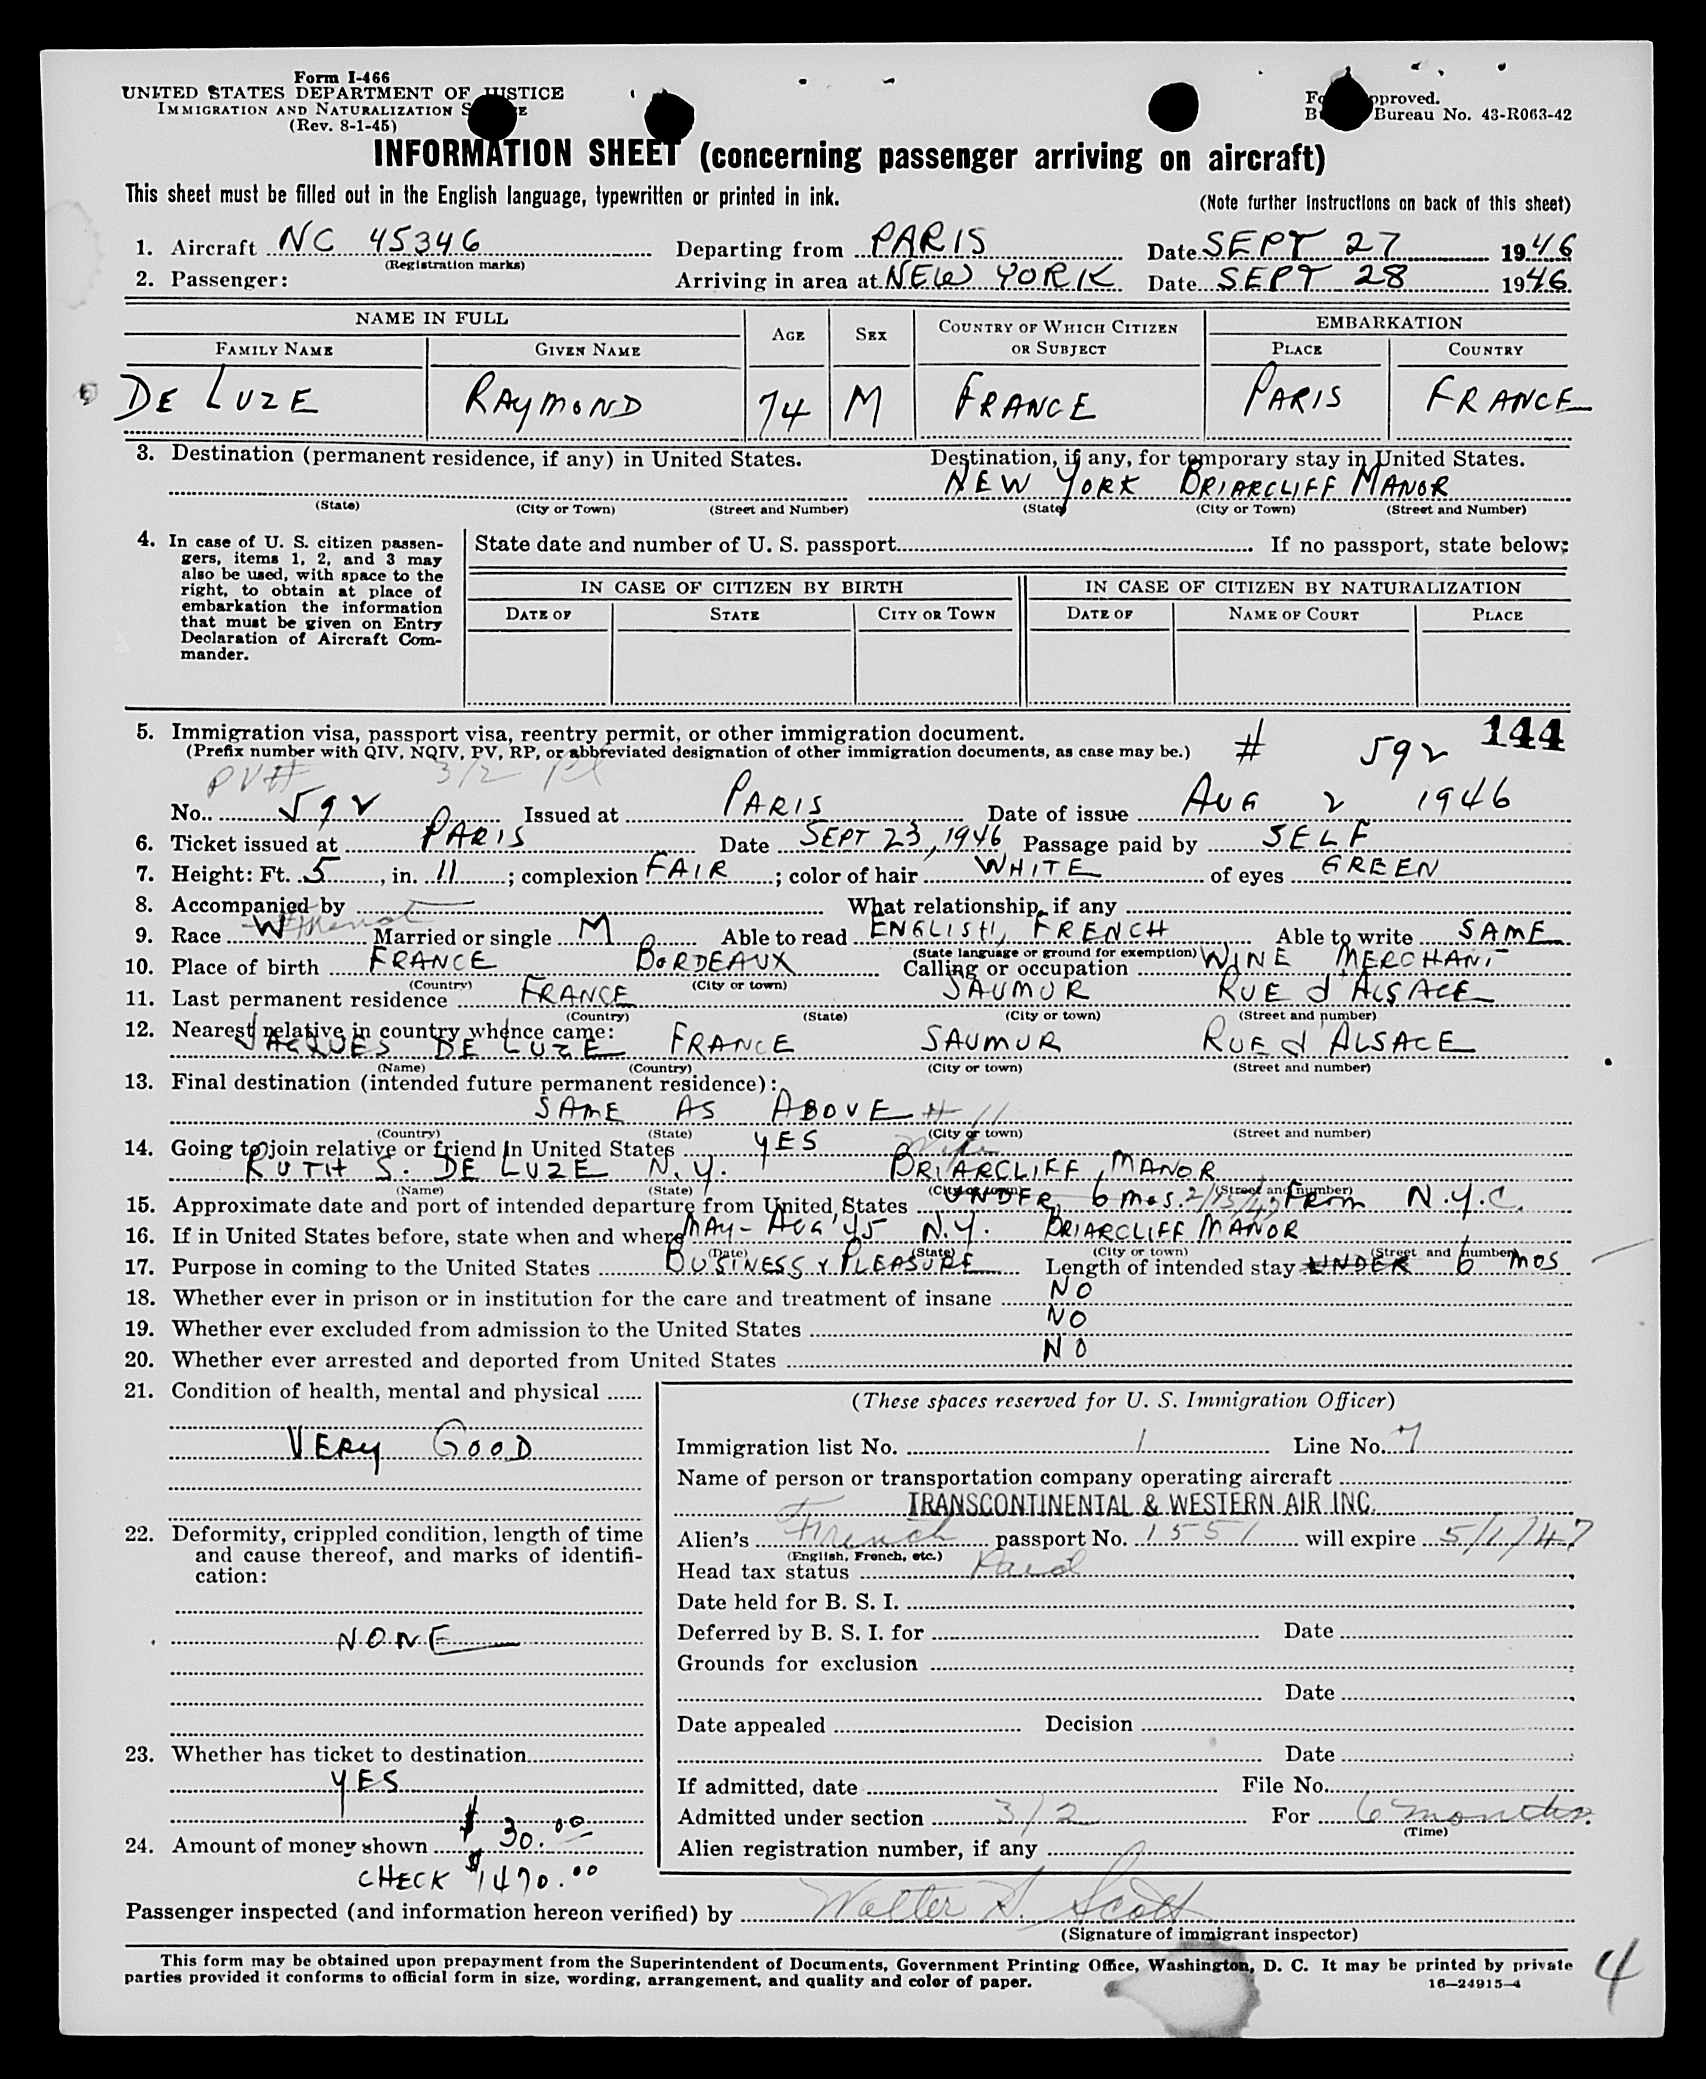 Form I-466
UNITED STATES DEPARTMENT OF JUSTICE
IMMIGRATION AND NATURALIZATION S E
(Rev. 8-1-45)
Fo pproved.
B Bureau No. 43-R063-42
INFORMATION SHEET (concerning passenger arriving on aircraft)
This sheet must be filled out in the English language, typewritten or printed in ink.
(Note further instructions on back of this sheet)
1. Aircraft NC 45346 Departing from PARIS Date SEPT 27 1946
(Registration marks)
2. Passenger: Arriving in area at NEW YORK Date SEPT 28 1946
NAME IN FULL AGE SEX COUNTRY OF WHICH CITIZEN OR SUBJECT EMBARKATION
FAMILY NAME GIVEN NAME PLACE COUNTRY
DE LUZE RAYMOND 74 M FRANCE PARIS FRANCE
3. Destination (permanent residence, if any) in United States. Destination, if any, for temporary stay in United States.
NEW YORK BRIARCLIFF MANOR
(State) (City or Town) (Street and Number) (State) (City or Town) (Street and Number)
4. In case of U. S. citizen passen-
gers, items 1, 2, and 3 may
also be used, with space to the
right, to obtain at place of
embarkation the information
that must be given on Entry
Declaration of Aircraft Com-
mander.
State date and number of U. S. passport If no passport, state below:
IN CASE OF CITIZEN BY BIRTH IN CASE OF CITIZEN BY NATURALIZATION
DATE OF STATE CITY OR TOWN DATE OF NAME OF COURT PLACE
5. Immigration visa, passport visa, reentry permit, or other immigration document.
144
(Prefix number with QIV, NQIV, PV, RP, or abbreviated designation of other immigration documents, as case may be.) # 592
PV# 3/2
No. 592 Issued at PARIS Date of issue AUG 2 1946
6. Ticket issued at PARIS Date SEPT 23, 1946 Passage paid by SELF
7. Height: Ft. 5, in. 11; complexion FAIR; color of hair WHITE of eyes GREEN
8. Accompanied by — What relationship, if any
9. Race W French Married or single M Able to read ENGLISH, FRENCH Able to write SAME
(State language or ground for exemption)
10. Place of birth FRANCE BORDEAUX Calling or occupation WINE MERCHANT
(Country) (City or town)
11. Last permanent residence FRANCE SAUMUR RUE d'ALSACE
(Country) (State) (City or town) (Street and number)
12. Nearest relative in country whence came:
JACQUES DE LUZE FRANCE SAUMUR RUE d'ALSACE
(Name) (Country) (City or town) (Street and number)
13. Final destination (intended future permanent residence):
SAME AS ABOVE # 11
(Country) (State) (City or town) (Street and number)
14. Going to join relative or friend in United States YES Wife
RUTH S. DE LUZE N.Y. BRIARCLIFF MANOR
(Name) (State) (City or town) (Street and number)
15. Approximate date and port of intended departure from United States UNDER 6 mos. From N.Y.C.
16. If in United States before, state when and where MAY - AUG '45 N.Y. BRIARCLIFF MANOR
(Date) (State) (City or town) (Street and number)
17. Purpose in coming to the United States BUSINESS & PLEASURE Length of intended stay UNDER 6 mos
18. Whether ever in prison or in institution for the care and treatment of insane NO
19. Whether ever excluded from admission to the United States NO
20. Whether ever arrested and deported from United States NO
21. Condition of health, mental and physical
VERY GOOD
22. Deformity, crippled condition, length of time
and cause thereof, and marks of identifi-
cation:
NONE
23. Whether has ticket to destination
YES
24. Amount of money shown $ 30.00
CHECK $1470.00
(These spaces reserved for U. S. Immigration Officer)
Immigration list No. 1 Line No. 7
Name of person or transportation company operating aircraft
TRANSCONTINENTAL & WESTERN AIR INC.
Alien's French passport No. 1551 will expire 5/1/47
(English, French, etc.)
Head tax status Paid
Date held for B. S. I.
Deferred by B. S. I. for Date
Grounds for exclusion
Date
Date appealed Decision
Date
If admitted, date File No.
Admitted under section 3/2 For 6 months.
(Time)
Alien registration number, if any
Passenger inspected (and information hereon verified) by Walter S. Scott
(Signature of immigrant inspector)
This form may be obtained upon prepayment from the Superintendent of Documents, Government Printing Office, Washington, D. C. It may be printed by private
parties provided it conforms to official form in size, wording, arrangement, and quality and color of paper.
16—24915-4
4